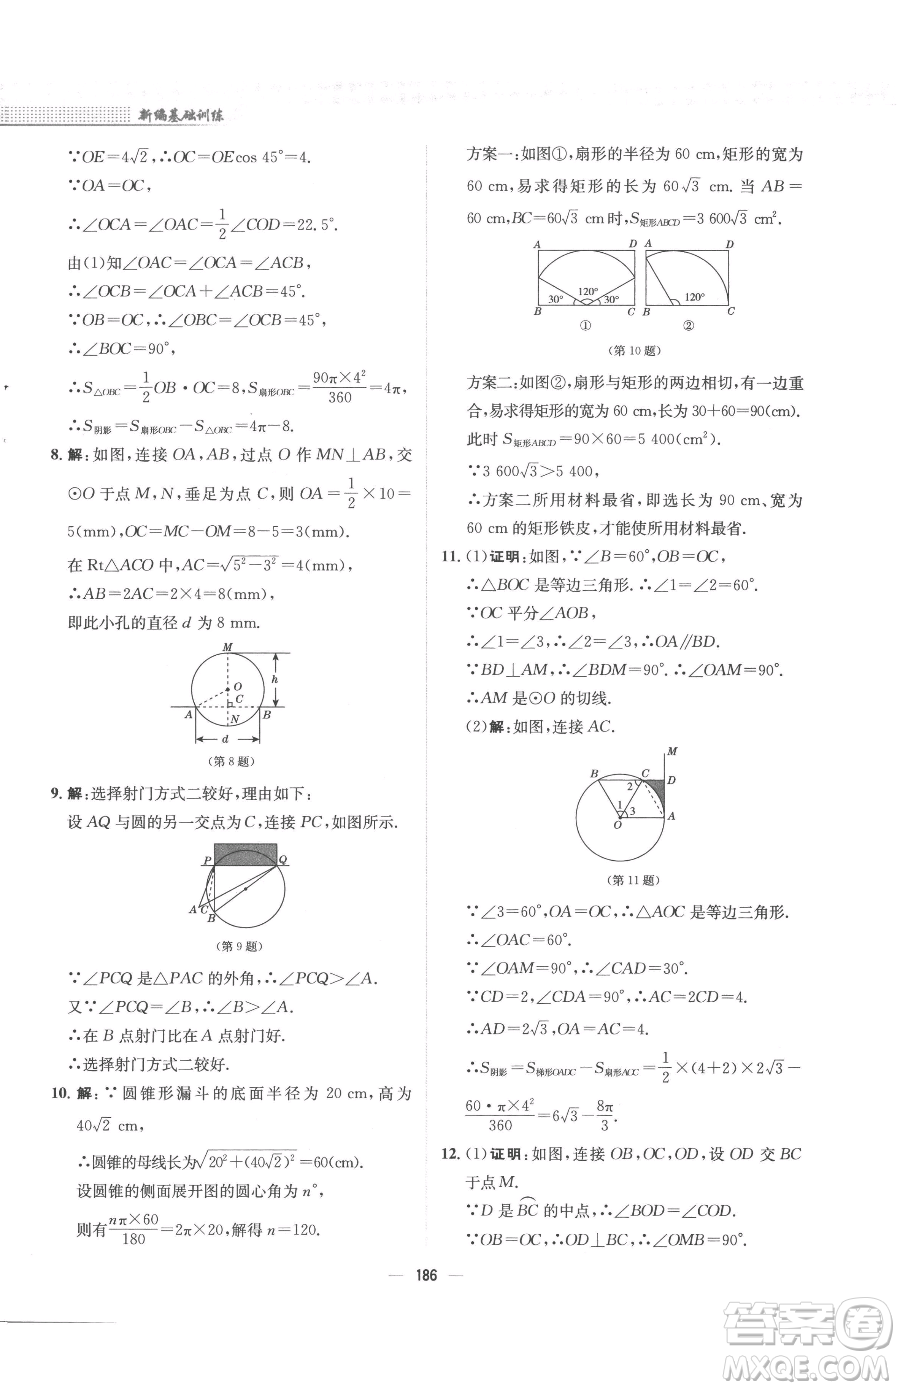 新编基础训练
∵OE=4√2,∴OC=OEcos 45°=4.
∵OA=OC,
∴∠OCA=∠OAC=1/2∠COD=22.5°.
由(1)知∠OAC=∠ACB,
∴∠OCB=∠OCA+∠ACB=45°.
∵OB=OC,∴∠OBC=∠OCB=45°.
∴∠BOC=90°,
∴S△OBC=1/2OB·OC=8,S扇形OBC=90π×4²/360=4π,
∴S阴影=S扇形OBC−S△OBC=4π−8.
8. 解:如图,连接 OA,AB,过点 O 作 MN⊥AB,交
⊙O 于点 M,N,垂足为点 C,则 OA=1/2×10=
5(mm),OC=MC−OM=8−5=3(mm).
在 Rt△ACO 中,AC=√(5²−3²)=4(mm),
∴AB=2AC=2×4=8(mm),
即此小孔的直径 d 为 8 mm.
M
O
h
C
A
N
B
d
(第 8 题)
9. 解:选择射门方式二较好,理由如下:
设 AQ 与圆的另一交点为 C,连接 PC,如图所示.
P
Q
A
C
B
(第 9 题)
∵∠PCQ 是△PAC 的外角,∴∠PCQ>∠A.
又∵∠PCQ=∠B,∴∠B>∠A.
∴在 B 点射门比在 A 点射门好.
∴选择射门方式二较好.
10. 解:∵圆锥形漏斗的底面半径为 20 cm,高为
40√2 cm,
∴圆锥的母线长为√(20²+(40√2)²)=60(cm).
设圆锥的侧面展开图的圆心角为 n°,
则有nπ×60/180=2π×20,解得 n=120.
方案一:如图①,扇形的半径为 60 cm,矩形的宽为
60 cm,易求得矩形的长为 60√3 cm. 当 AB=
60 cm,BC=60√3 cm时,S矩形ABCD=3 600√3 cm².
A
D
A
D
120°
30°
30°
120°
B
C
B
C
①
②
(第 10 题)
方案二:如图②,扇形与矩形的两边相切,有一边重
合,易求得矩形的宽为 60 cm,长为 30+60=90(cm).
此时 S矩形ABCD=90×60=5 400(cm²).
∵3 600√3>5 400,
∴方案二所用材料最省,即选长为 90 cm、宽为
60 cm 的矩形铁皮,才能使所用材料最省.
11. (1)证明:如图,∵∠B=60°,OB=OC,
∴△BOC 是等边三角形.∴∠1=∠2=60°.
∵OC 平分∠AOB,
∴∠1=∠3,∴∠2=∠3,∴OA∥BD.
∵BD⊥AM,∴∠BDM=90°.∴∠OAM=90°.
∴AM 是⊙O 的切线.
(2)解:如图,连接 AC.
M
B
C
D
2
1
3
O
A
(第 11 题)
∵∠3=60°,OA=OC,∴△AOC 是等边三角形.
∴∠OAC=60°.
∵∠OAM=90°,∴∠CAD=30°.
∵CD=2,∠CDA=90°,∴AC=2CD=4.
∴AD=2√3,∴OA=OC=4.
∴S阴影=S梯形OADC−S扇形AOC=1/2×(4+2)×2√3−
60·π×4²/360=6√3−8π/3.
12. (1)证明:如图,连接 OB,OC,OD,设 OD 交 BC
于点 M.
∵D 是BC⌢的中点,∴∠BOD=∠COD.
∵OB=OC,∴OD⊥BC,∴∠OMC=90°.
186
答案卷
MXQE.COM